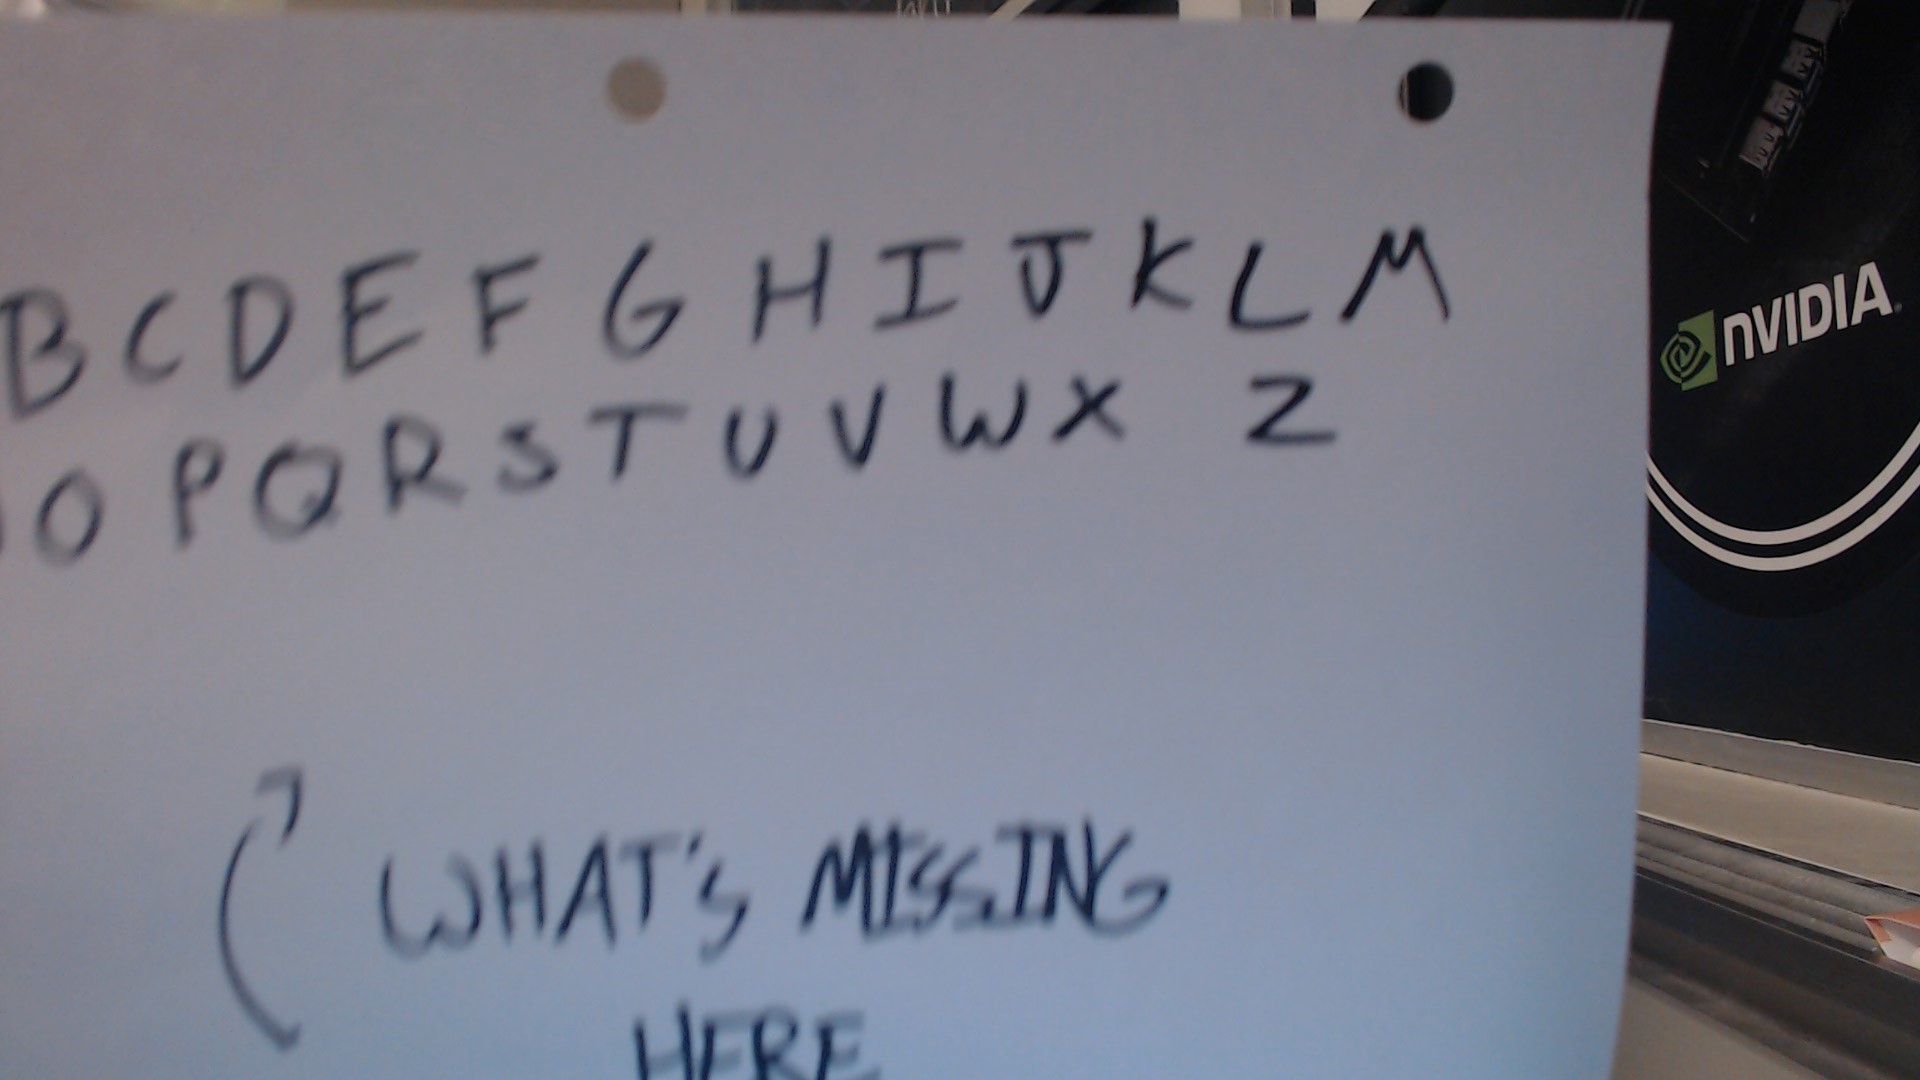 BCDEFGHIJKLM
OPQRSTUVWX Z
WHAT'S MISSING
HERE
NVIDIA